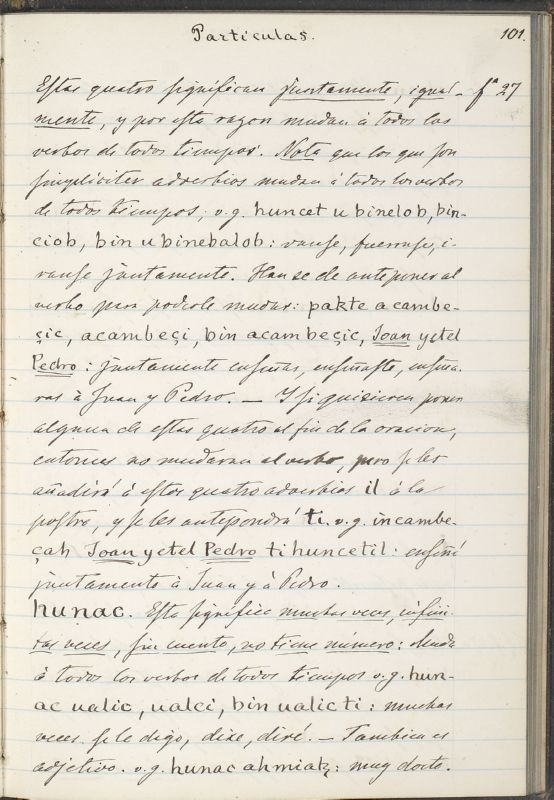 Particulas. 101.
Estas quatro significan juntamente, igual- fº 27
mente, y por esta razon mudan à todos los
verbos de todos tiempos. Nota que los que son
simpliciter adverbios mudan à todos los verbos
de todos tiempos; v.g. huncet u binelob, bin-
ciob, bin u binebalob: vanse, fueronse, i-
ranse juntamente. Han se de anteponer al
verbo para poderle mudar: pakte a cambe-
çic, a cambeçi, bin a cambeçic, Joan yetel
Pedro: juntamente enseñas, enseñaste, enseña-
ras à Juan y Pedro. — Y si quisieren poner
alguna de estas quatro al fin de la oracion,
entonces no mudaran al verbo, pero se les
añadirá à estos quatro adverbios il à la
postre, y se les antepondrá ti. v.g. in cambe-
çah Joan yetel Pedro ti huncetil: enseñé
juntamente à Juan y à Pedro.
hunac. Esta significa muchas veces, infini-
tas veces, sin cuento, no tiene número: Muda
à todos los verbos de todos tiempos v.g. hun-
ac ualic, ualci, bin ualic ti: muchas
veces se le digo, dixe, diré. — Tambien es
adjetivo. v.g. hunac ahmiatz: muy docto.